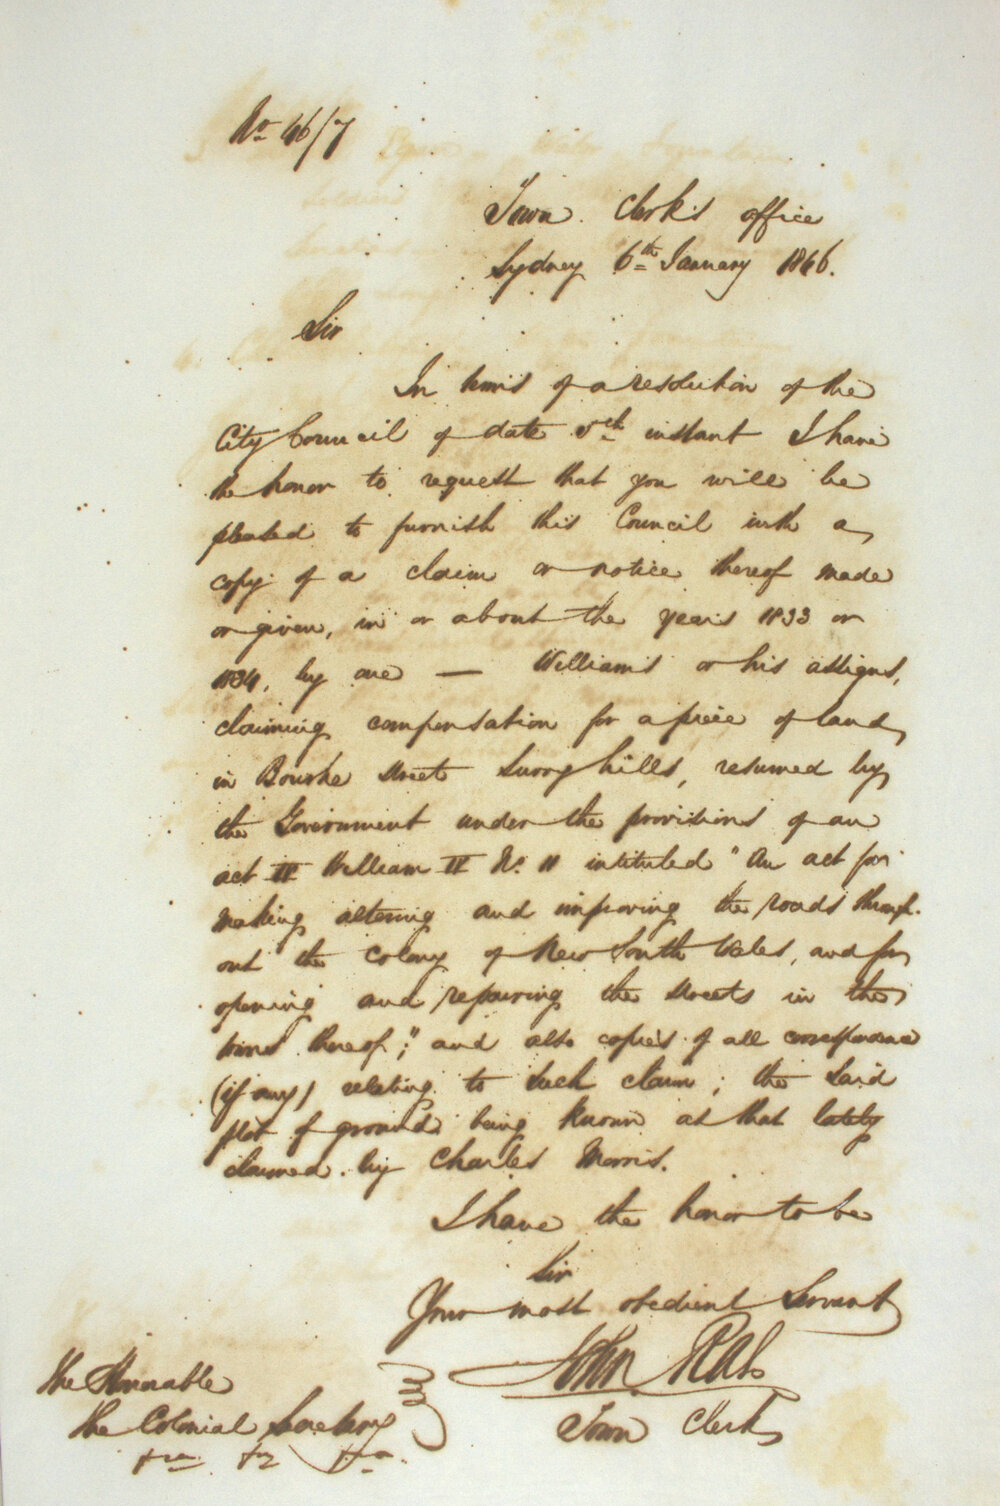 No 46/7
Town Clerk's office
Sydney 6th January 1846.
Sir
In terms of a resolution of the
City Council of date 5th instant I have
the honor to request that you will be
pleased to furnish this Council with a
copy of a claim or notice thereof made
or given, in or about the years 1833 or
1834, by one — Williams or his assigns,
claiming compensation for a piece of land
in Bourke Street Surry hills, resumed by
the Government under the provisions of an
act IV William IV No. 11 intituled "An act for
making altering and improving the roads through-
out the colony of New South Wales, and for
opening and repairing the streets in the
towns thereof;" and also copies of all correspondence
(if any) relating to such claim; the said
plot of ground being known as that lately
claimed by Charles Morris.
I have the honor to be
Sir
Your most obedient Servant
John Rae
Town Clerk
The Honorable
The Colonial Secretary